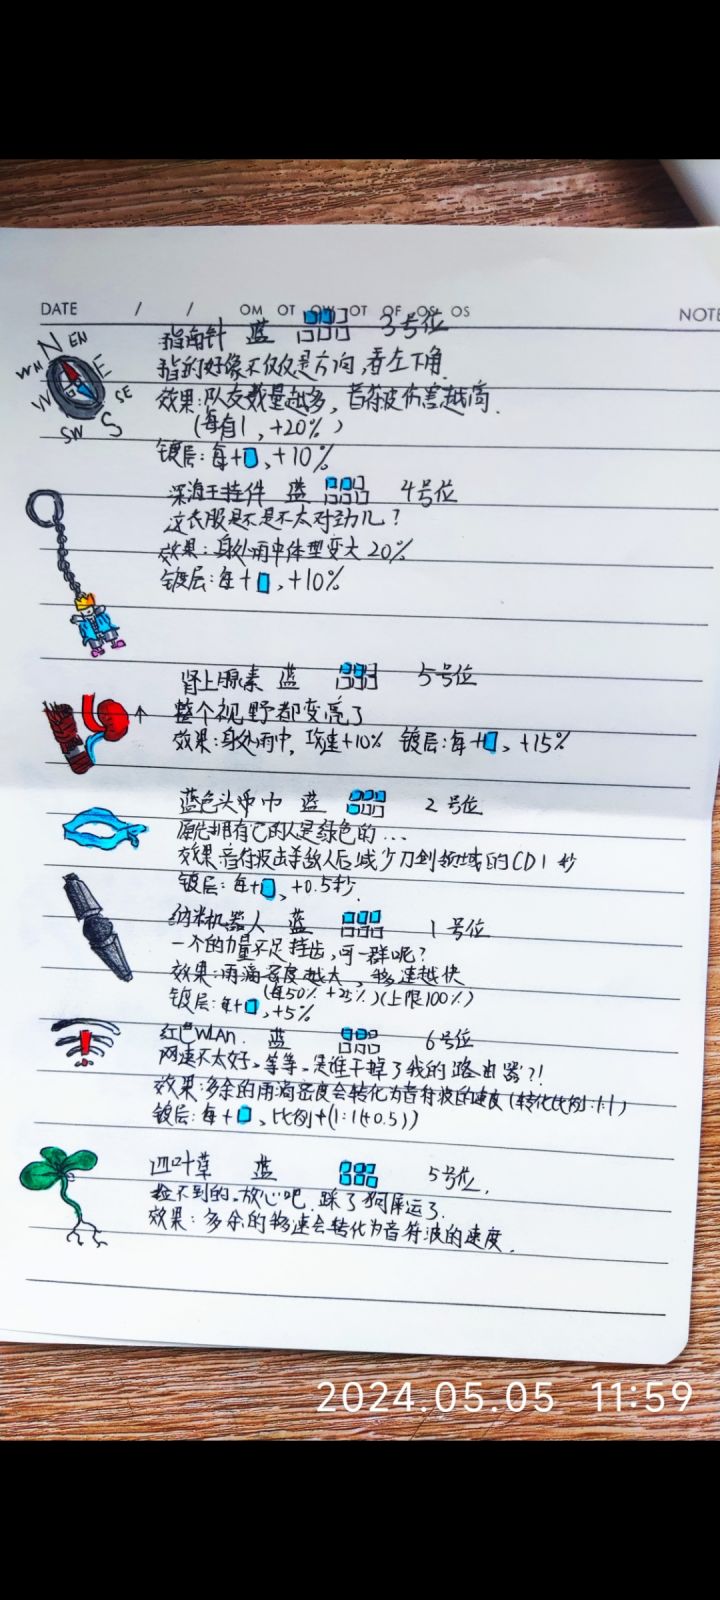 DATE / / OM OT OW OT OF OS OS NOTE
指南针 蓝 3号位
指的好像不仅仅是方向,看左下角.
效果:队友数量越多,音符波伤害越高.
(每有1,+20%)
镀层:每+,+10%
深海王挂件 蓝 4号位
这衣服是不是不太对劲儿?
效果:身处雨中体型变大20%
镀层:每+,+10%
肾上腺素 蓝 5号位
整个视野都变亮了
效果:身处雨中,攻速+10% 镀层:每+,+15%
蓝色头巾 蓝 2号位
原先拥有它的人是绿色的...
效果:音符波击中敌人后减少刀剑领域的CD1秒
镀层:每+,+0.5秒.
纳米机器人 蓝 1号位
一个的力量不足挂齿,可一群呢?
效果:雨滴密度越大,移速越快
(每50%+25%)(上限100%)
镀层:每+,+5%
红色WLAN. 蓝 6号位
网速不太好。等等,是谁干掉了我的路由器?!
效果:多余的雨滴密度会转化为音符波的速度(转化比例:1:1)
镀层:每+,比例+(1:1(+0.5))
四叶草 蓝 5号位.
捡不到的。放心吧.踩了狗屎运了.
效果:多余的移速会转化为音符波的速度.
N EN E SE S SW W WN
2024.05.05 11:59